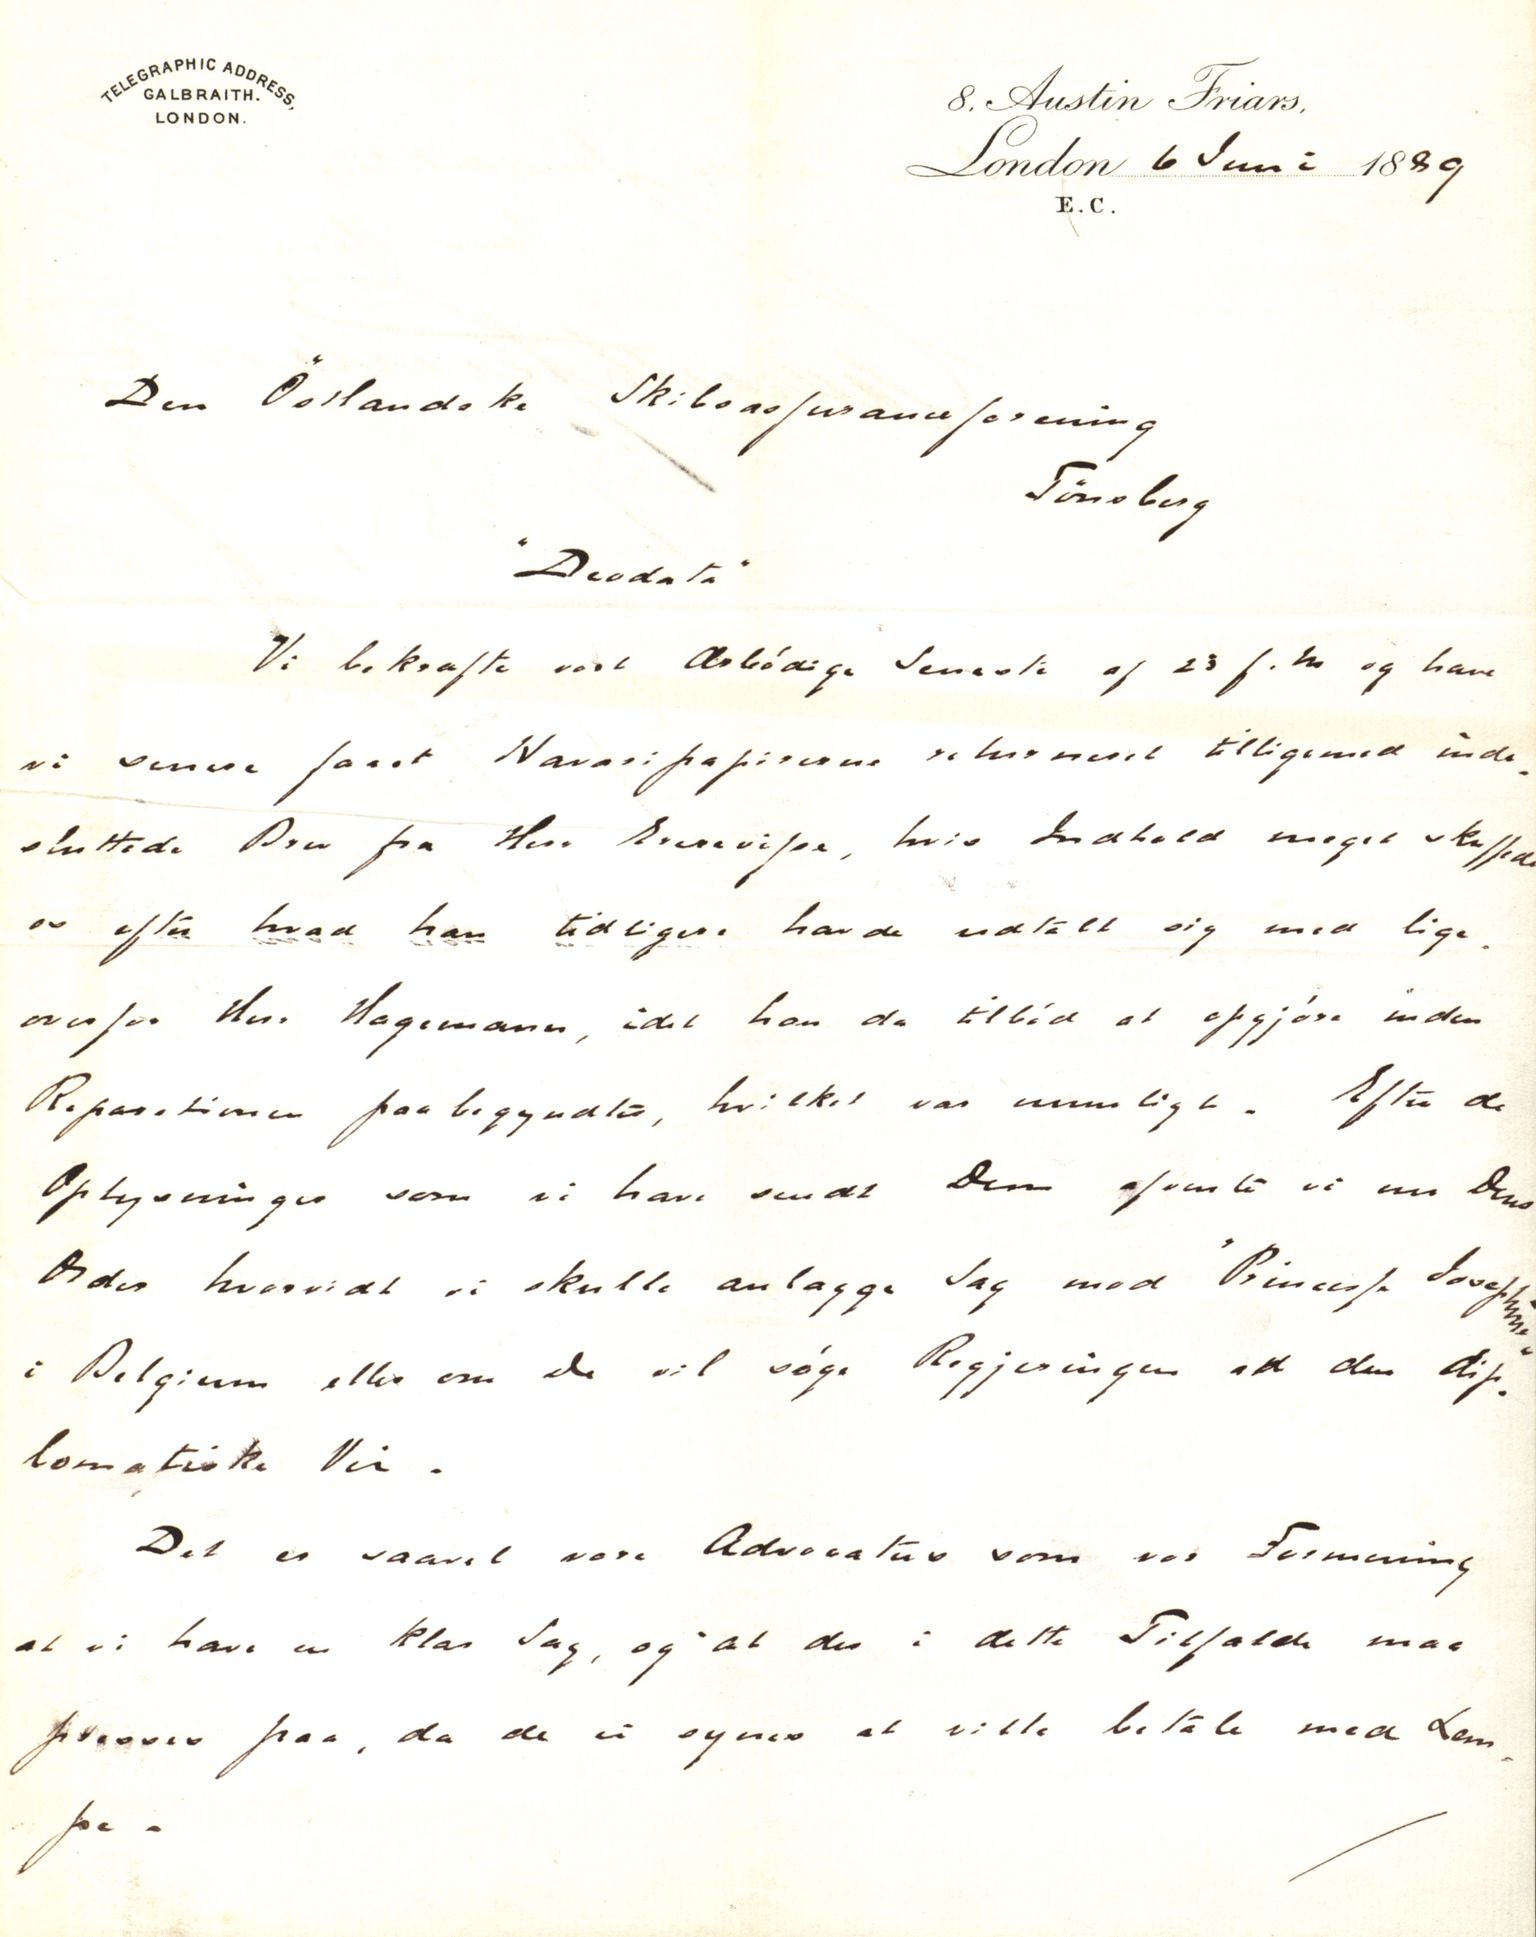 TELEGRAPHIC ADDRESS,
GALBRAITH.
LONDON.
8. Austin Friars,
London 6 Juni 1889
E.C.
Den Östlandske Skibsassuranceforening
Tönsberg
"Deodata"
Vi bekræfte vort Ærbödige Seneste af 23 f. M og have
vi senere faaet Havaripapirerne returneret tilligemed inde-
sluttede Brev fra Herr , hvis Indhold meget skuffede
os efter hvad han tidligere havde udtalt sig med lige-
overfor Herr Hagemann, idet han da tilböd at opgjöre inden
Reparationen paabegyndtes, hvilket var umuligt. Efter de
Oplysninger som vi have sendt Dem afvente vi nu Deres
Ordre hvorvidt vi skulle anlægge Sag mod "Princesse Josephine"
i Belgium eller om De vil söge Regjeringen ad den dip-
lomatiske Vei.
Det er saavel vore Advocaters som vor Formening
at vi have en klar Sag, og at der i dette Tilfælde maa
presses paa, da de ei synes at ville betale med Læm-
pe.